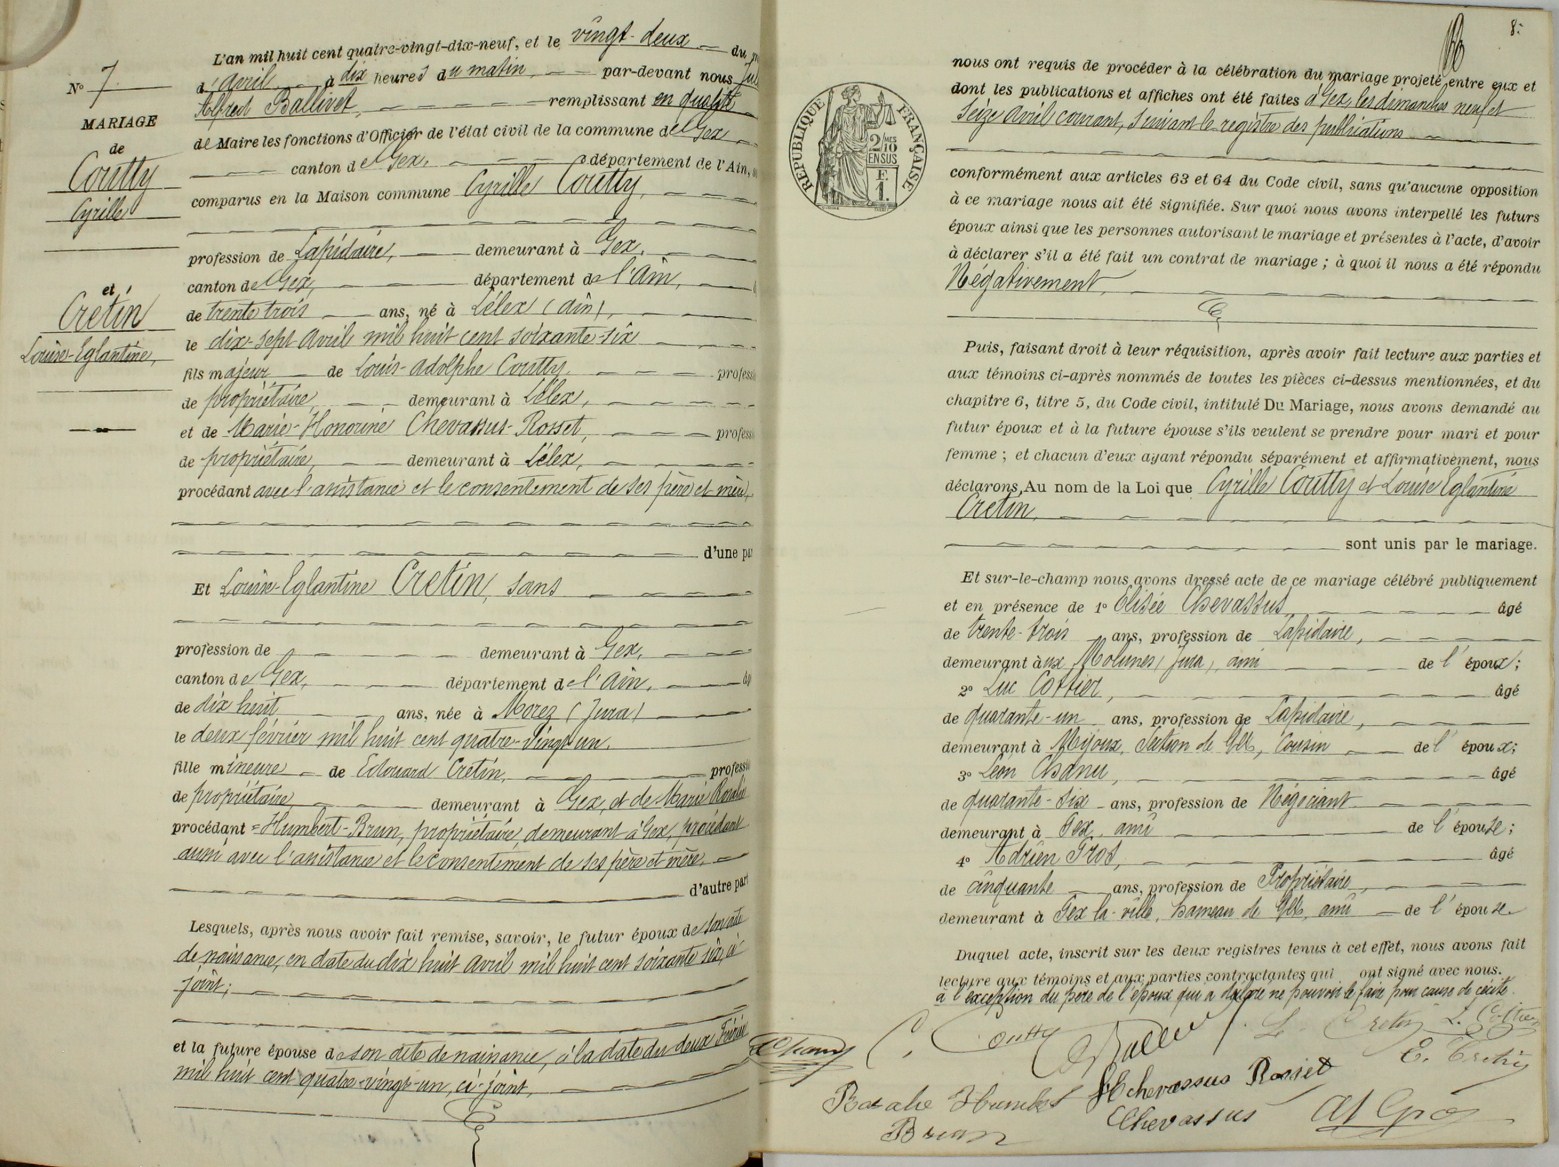 N° 7
MARIAGE
de
Coutty
Cyrille
et
Cretin
Louise-Eglantine,
L'an mil huit cent quatre-vingt-dix-neuf, et le vingt-deux du
d'avril à dix heures du matin, par-devant nous
Alfred Ballivet, remplissant en qualité
de Maire les fonctions d'Officier de l'état civil de la commune de Gex
canton de Gex, département de l'Ain,
comparus en la Maison commune Cyrille Coutty,
profession de Lapidaire, demeurant à Gex,
canton de Gex, département de l'Ain,
de trente trois ans, né à Lélex (Ain),
le dix-sept avril mil huit cent soixante-six
fils majeur de Louis-Adolphe Coutty, profess
de propriétaire demeurant à Lélex,
et de Marie-Honorine Chevassus-Rosset, profess
de propriétaire, demeurant à Lélex,
procédant avec l'assistance et le consentement de ses père et mère,
d'une pa
Et Louise-Eglantine Cretin, sans
profession de demeurant à Gex,
canton de Gex, département de l'Ain,
de dix huit ans, née à Morez (Jura)
le deux février mil huit cent quatre-vingt-un,
fille mineure de Edouard Cretin, professi
de propriétaire demeurant à Gex, et de Marie Rosalie
procédant = Humbert-Brun, propriétaire, demeurant à Gex, procédant
aussi avec l'assistance et le consentement de ses père et mère,
d'autre part
Lesquels, après nous avoir fait remise, savoir, le futur époux de son acte
de naissance, en date du dix huit avril mil huit cent soixante six, ci
joint;
et la future épouse de son acte de naissance, à la date du deux Février
mil huit cent quatre-vingt-un, ci-joint,
8.
RÉPUBLIQUE FRANÇAISE
2/10
EN SUS
F.
1.
nous ont requis de procéder à la célébration du mariage projeté entre eux et
dont les publications et affiches ont été faites à Gex, les dimanches neuf et
seize avril courant, suivant le registre des publications
conformément aux articles 63 et 64 du Code civil, sans qu'aucune opposition
à ce mariage nous ait été signifiée. Sur quoi nous avons interpellé les futurs
époux ainsi que les personnes autorisant le mariage et présentes à l'acte, d'avoir
à déclarer s'il a été fait un contrat de mariage ; à quoi il nous a été répondu
Négativement,
Puis, faisant droit à leur réquisition, après avoir fait lecture aux parties et
aux témoins ci-après nommés de toutes les pièces ci-dessus mentionnées, et du
chapitre 6, titre 5, du Code civil, intitulé Du Mariage, nous avons demandé au
futur époux et à la future épouse s'ils veulent se prendre pour mari et pour
femme ; et chacun d'eux ayant répondu séparément et affirmativement, nous
déclarons, Au nom de la Loi que Cyrille Coutty et Louise Eglantine
Cretin,
sont unis par le mariage.
Et sur-le-champ nous avons dressé acte de ce mariage célébré publiquement
et en présence de 1° Elisée Chevassus, âgé
de trente-trois ans, profession de Lapidaire,
demeurant aux Molunes (Jura), ami de l'époux;
2° Luc Cottier, âgé
de quarante-un ans, profession de Lapidaire,
demeurant à Mijoux, section de Gex, Cousin de l'époux;
3° Léon Chanu, âgé
de quarante-six ans, profession de Négociant
demeurant à Gex, ami de l'épouse;
4° Adrien Gros, âgé
de cinquante ans, profession de Propriétaire,
demeurant à Gex la-ville, hameau de Gex, ami de l'épouse
Duquel acte, inscrit sur les deux registres tenus à cet effet, nous avons fait
lecture aux témoins et aux parties contractantes qui ont signé avec nous.
à l'exception du père de l'époux qui a déclaré ne pouvoir le faire pour cause de cécité.
Chanu C. Coutty Ballivet L. Cretin L. Cottier
E. Cretin
Rosalie Humbert Chevassus Rosset
Brun Chevassus Ad Gros